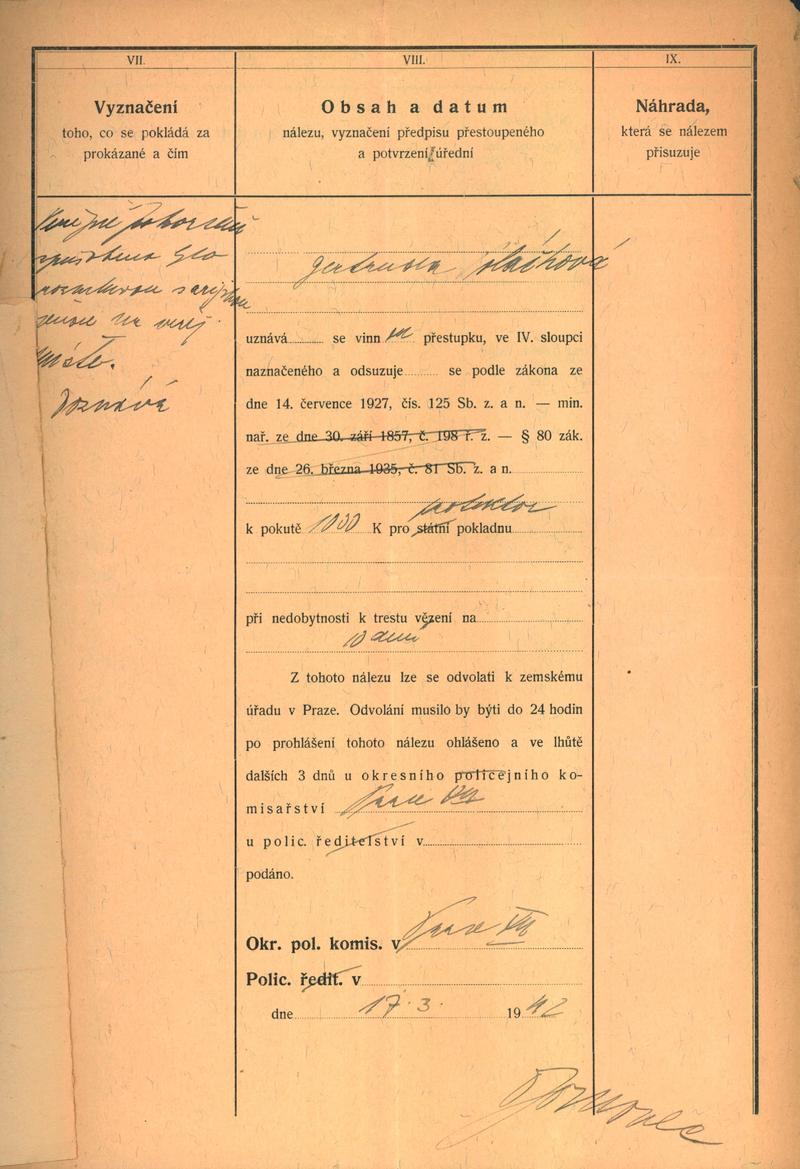 VII.
Vyznačení
toho, co se pokládá za
prokázané a čím
Veřejné pohoršení
způsobeno
na veřej.
místě.
Doznává
VIII.
Obsah a datum
nálezu, vyznačení předpisu přestoupeného
a potvrzení úřední
Gertruda
uznává se vinn přestupku, ve IV. sloupci
naznačeného a odsuzuje se podle zákona ze
dne 14. července 1927, čís. 125 Sb. z. a n. — min.
nař. ze dne 30. září 1857, č. 198 ř. z. — § 80 zák.
ze dne 26. března 1935, č. 81 Sb. z. a n.
k pokutě 1000 K pro státní pokladnu
při nedobytnosti k trestu vězení na
10 dnů
Z tohoto nálezu lze se odvolati k zemskému
úřadu v Praze. Odvolání musilo by býti do 24 hodin
po prohlášení tohoto nálezu ohlášeno a ve lhůtě
dalších 3 dnů u okresního policejního ko-
misařství Praze VII
u polic. ředitelství v
podáno.
Okr. pol. komis. v Praze VII
Polic. ředit. v
dne 17. 3. 1942
IX.
Náhrada,
která se nálezem
přisuzuje